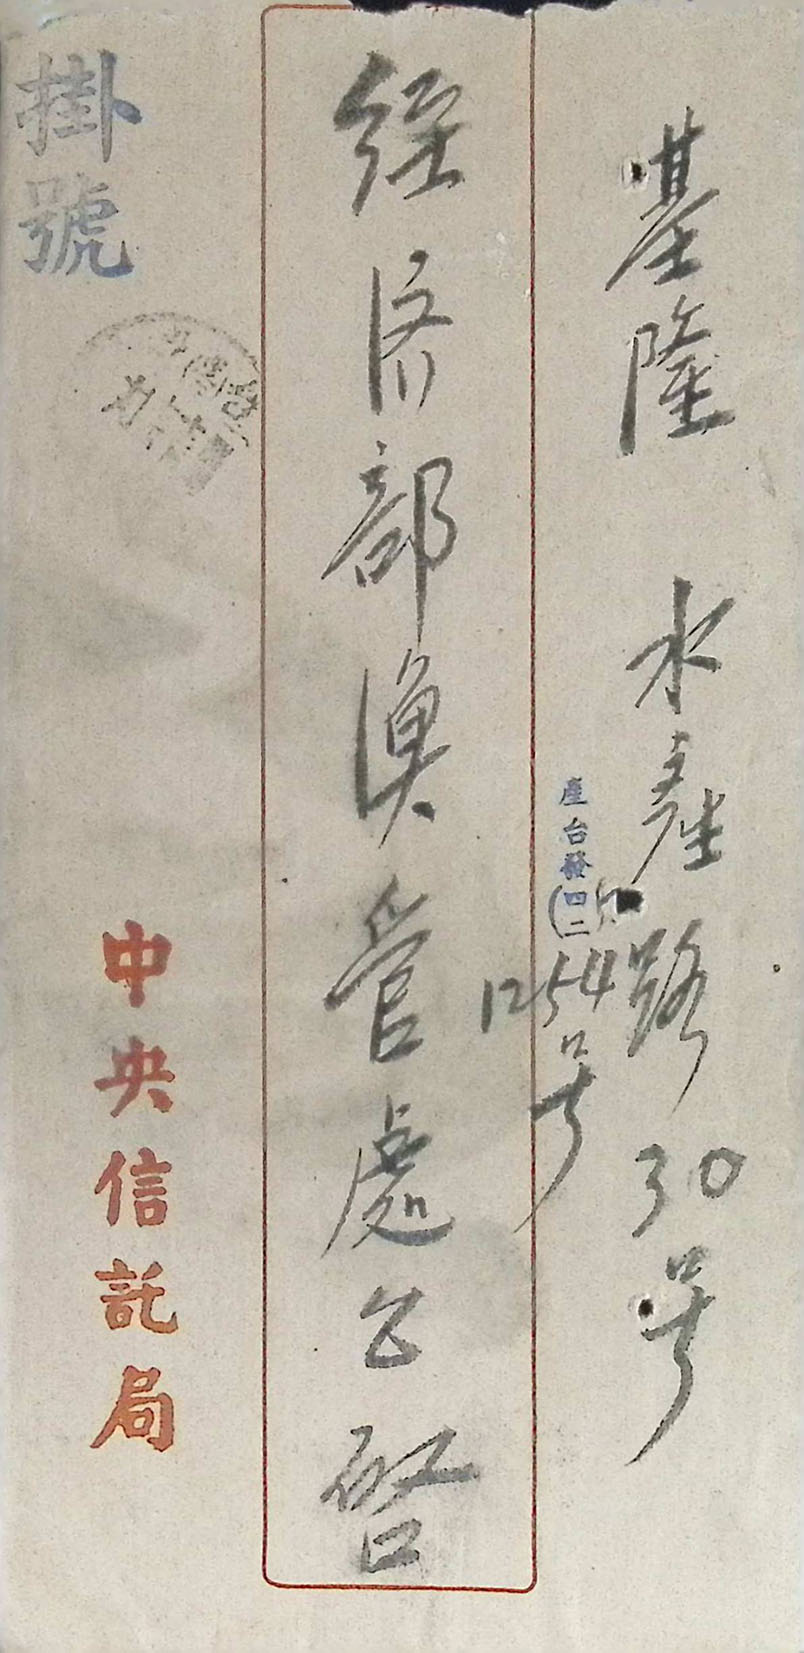 基隆 水產路30号
產台發(四二)
1254号
経済部漁管處公啓
掛號
中央信託局